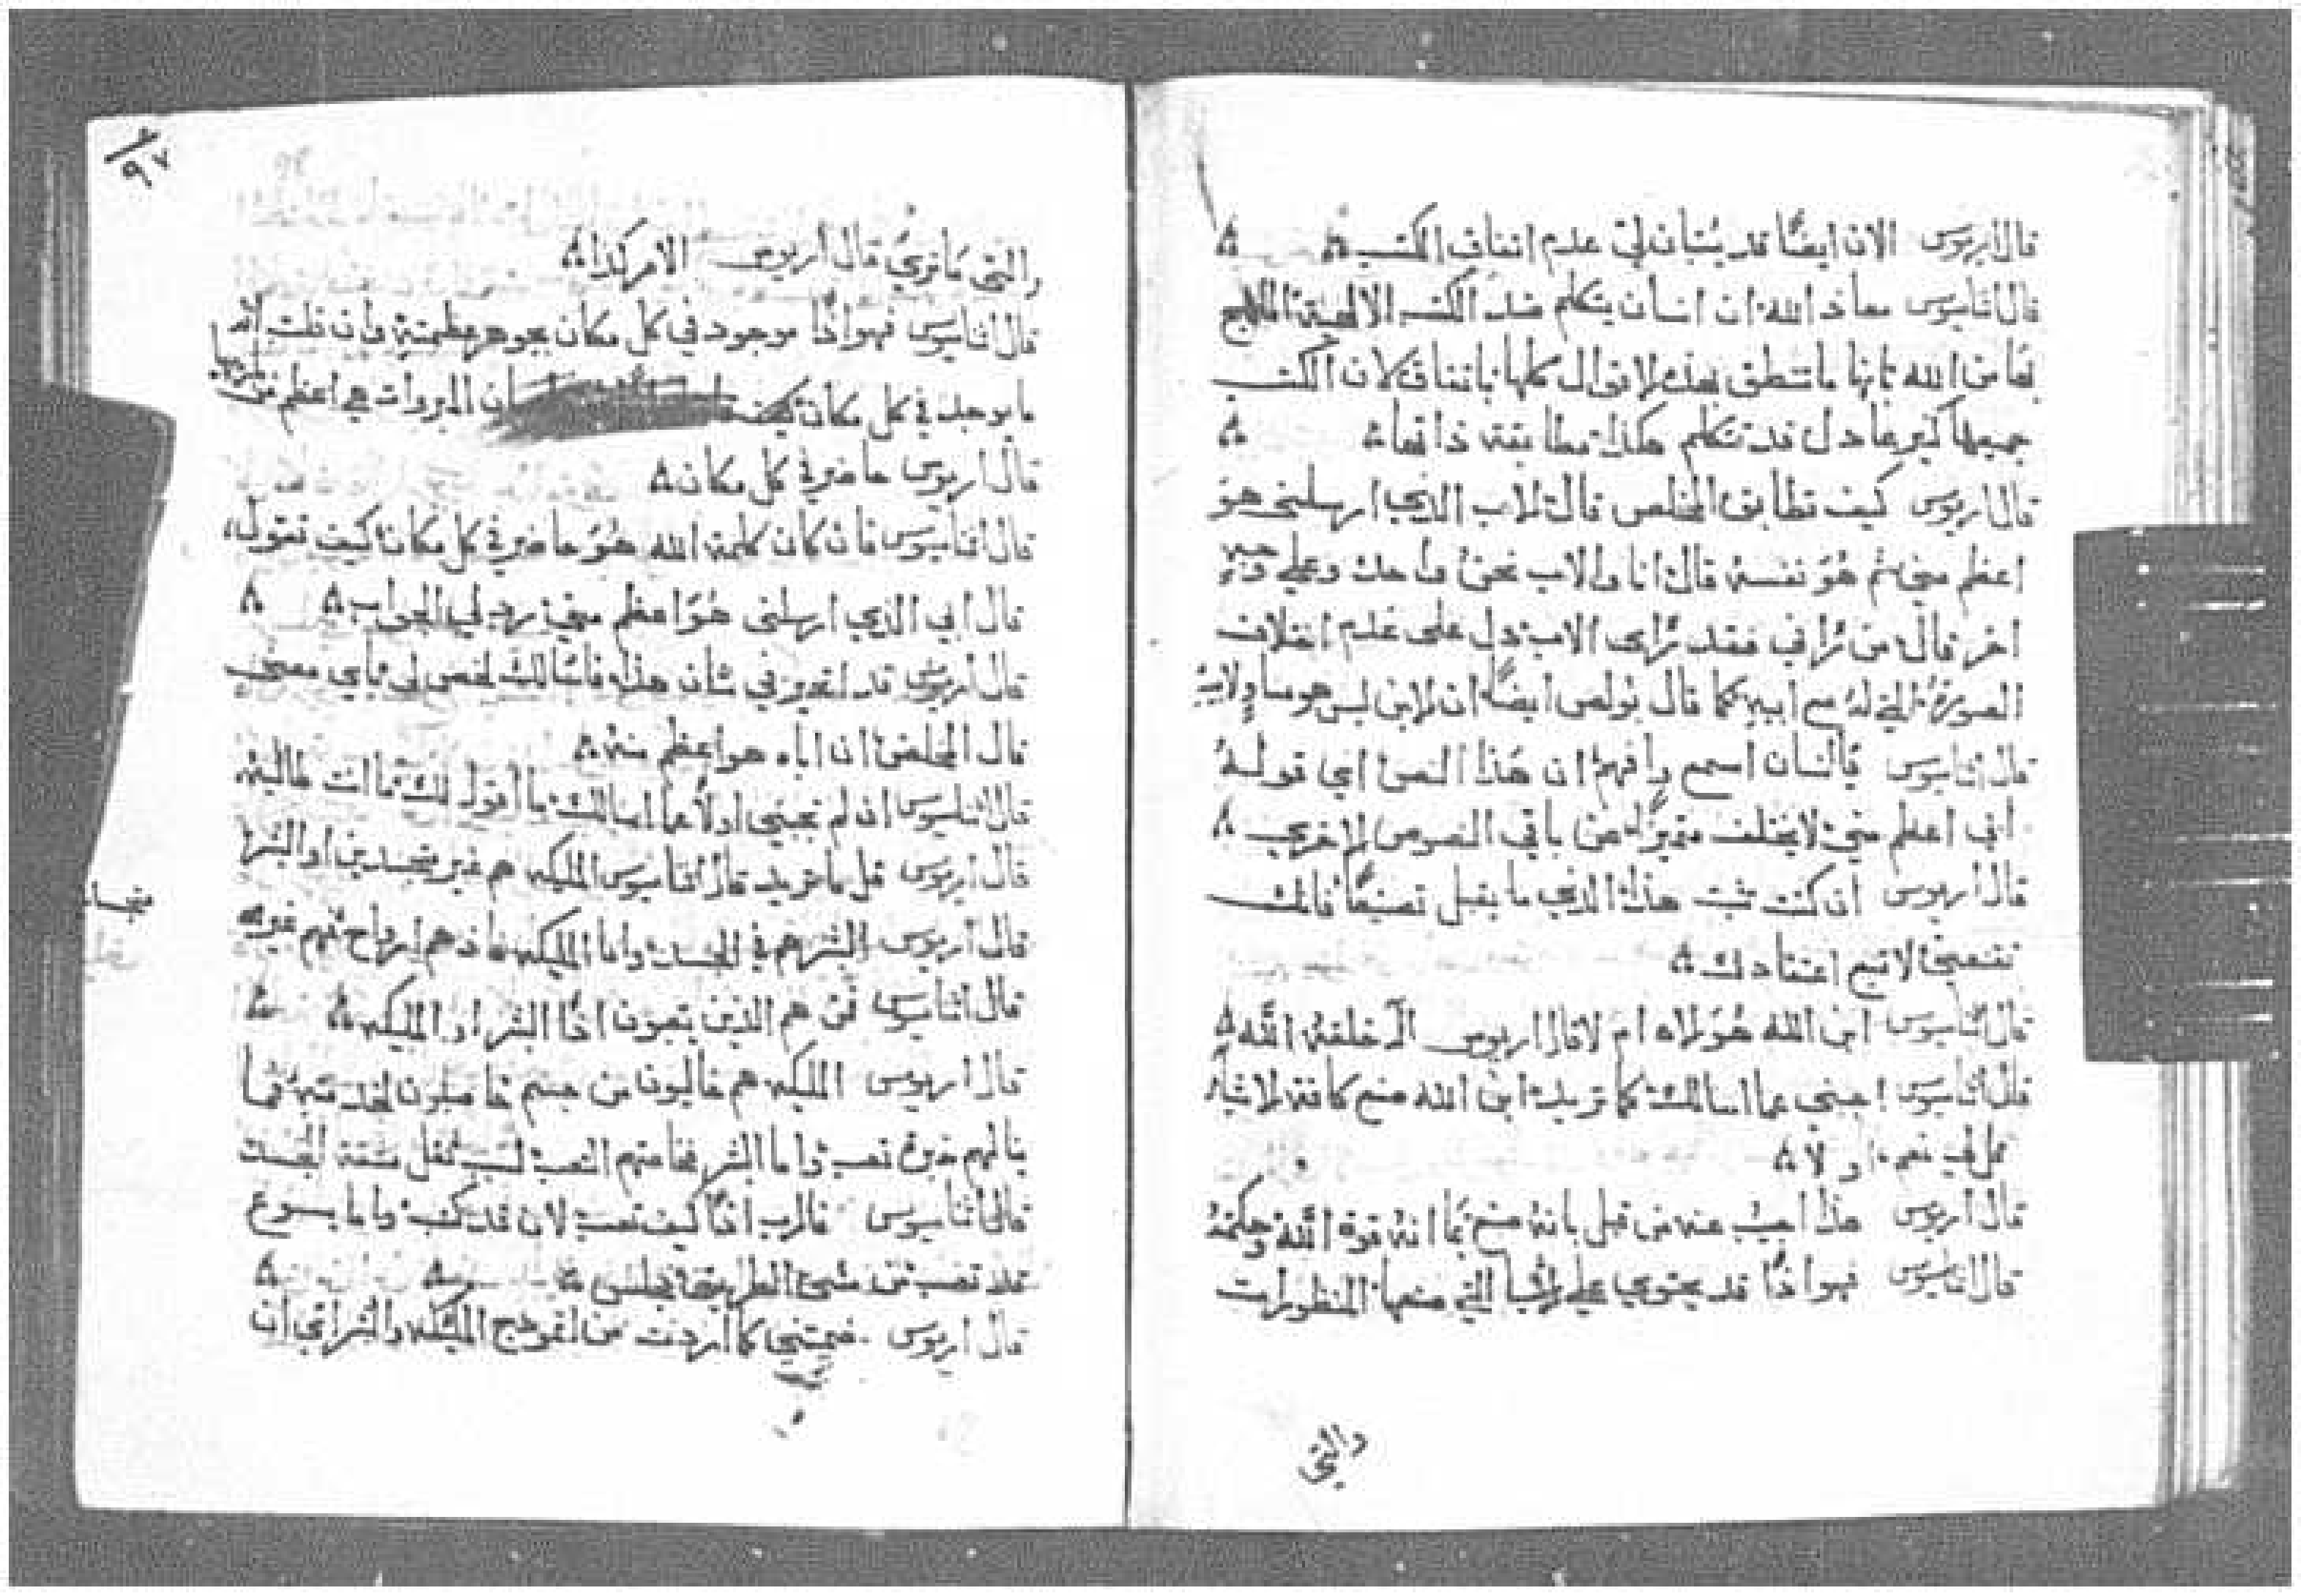 قال اريوس الان ايضًا قد يُتبان لي عدم اتفاق الكتب
قال اثناسيوس معاذ الله ان انسان يتكلم ضد الكتب الالهية
من الله بانها ما تنطق بهذه الاقوال كلها باتفاق لان الكتب
جميعها كغير عادل قد تتكلم هكذا مطابقة ذاتها
قال اريوس كيف تطابق المخلص قال الاب الذي ارسلني هو
اعظم مني ثم هوَ نفسه قال انا والاب نحن واحد وعلى وجه
اخر قال من راني فقد راى الاب دل على عدم اختلاف
الصورة التي له مع ابيه كما قال بولص ايضًا ان الابن ليس هو مساوٍ لابيه
قال اثناسيوس يا انسان اسمع وافهم ان هذا النص اي قوله
ابي اعظم مني لا يختلف متميزًا عن باقي النصوص الاخرى
قال اريوس ان كنت تثبت هذا الذي ما يقبل تصنيعًا فانك
تقنعني لاتبع اعتقادك
قال اثناسيوس ابن الله هُوَ لاه ام لا قال اريوس الٓه خلقهُ الله
قال اثناسيوس اجبني عما اسالك كما تريد ابن الله صنع كافة الاشيا
قل لي نعم او لا
قال اريوس هذا اجيبُ عنه من قبل بانهُ صنع بما انهُ قوة الله وحكمتهُ
قال اثناسيوس فهو اذًا قد يحتوي على الاشيا التي صنعها المنظورات
والتي
٩٧
والتي ما تُرى قال اريوس الامر كذا
قال اثناسيوس فهو اذًا موجود في كل مكان بجوهر عظمته وان قلت انه
ما يوجد في كل مكان كيف ان المبروات هي اعظم من باريها
قال اريوس حاضر في كل مكان
قال اثناسيوس فان كان كلمة الله هُوَ حاضر في كل مكان كيف تقول
قال ابي الذي ارسلني هُوَ اعظم مني رد لي الجواب
قال اريوس قد اتحير في شان هذا فاسالك لخص لي باي معنى
قال المخلص ان اباه هو اعظم منه
قال اثناسيوس ان لم تجبني اولًا عما اسالك ما اقول لك ما انت طالبه
قال اريوس قل ما تريد قال اثناسيوس المليكه هم غير متجسدين او البشر
قال اريوس البشر هم في الجسد واما المليكه فاذ هم ارواح فهم غير
قال اثناسيوس فمن هم الذين يتعبون اذًا البشر او المليكه
قال اريوس المليكه هم خاليون من جسم حاصلون لخدمته فما
ينالهم تعب واما البشر فخاصتهم التعب لسبب ثقل الجسد
قال اثناسيوس فالرب اذًا كيف تعب لان قد كتب واما يسوع
قد تعب من مشي الطريق فجلس
قال اريوس كما اردت من انموذج المليكه والبشر